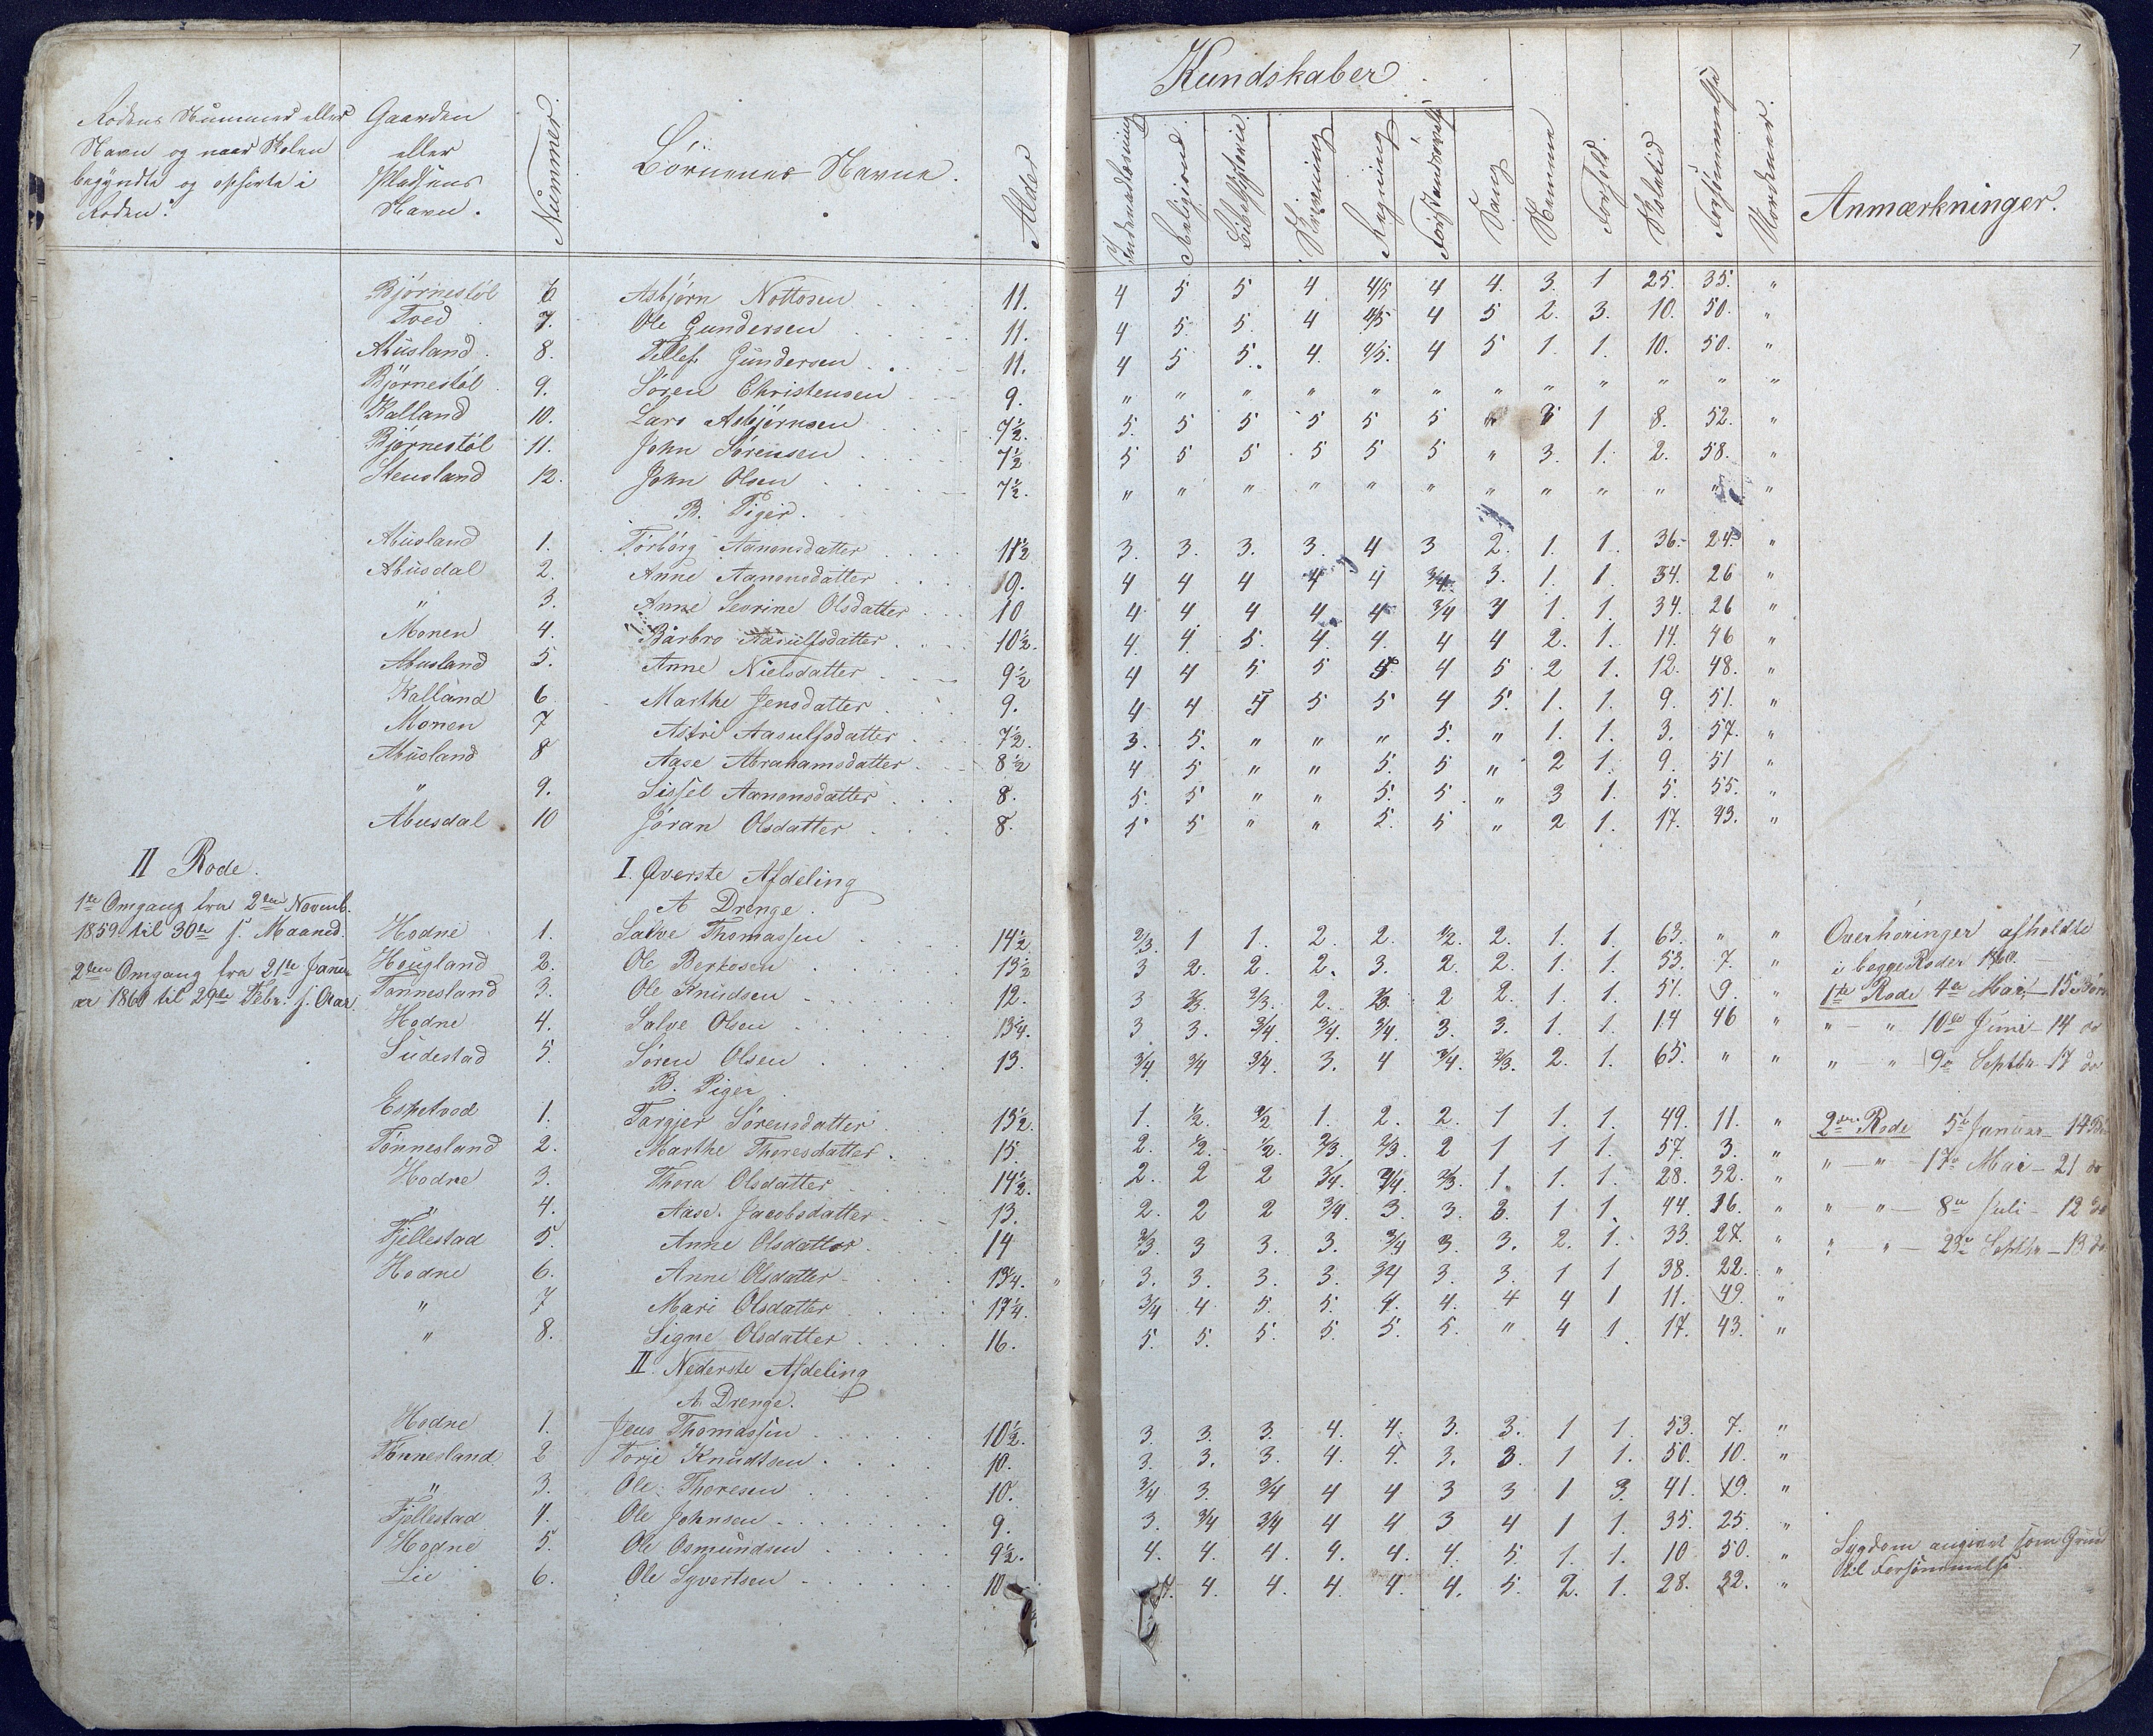 7
Kundskaber
Rodens Nummer eller
Navn og naar Skolen
begyndte og ophørte i
Roden.
Gaarden
eller
Pladsens
Navn.
Nummer.
Børnenes Navne.
Alder
Indenadlæsning
Religion
Bibelhistorie
Skrivning
Regning
Forstandsøvelse
Sang
Nemme
Forhold.
Skoletid
Forsømmelse
Anmærkninger.
Bjørnestøl 6. Asbjørn Nottosen 11. 4 5 5 4 4/5 4 4. 3. 1 25. 35. "
Tved 7. Ole Gundersen 11. 4 5. 5. 4 4/5 4 5 2. 3. 10. 50. "
Abusland 8. Tellef Gundersen 11. 4 5 5. 4. 4/5. 4 5 1. 1. 10. 50. "
Bjørnestøl 9. Søren Christensen 9. " " " " " " " " " " " "
Kalland 10. Lars Asbjørnsen 7½. 5. 5 5 5 5 5 " 3 1 8. 52. "
Bjørnestøl 11. John Sørensen 7½ 5 5 5 5 5 5 " 3. 1. 2. 58. "
Stensland 12. John Olsen 7½. " " " " " " " " " " " "
B. Piger.
Abusland 1. Torborg Aanonsdatter 11½ 3. 3. 3. 3. 4 3 2. 1. 1. 36. 24. "
Abusdal 2. Anne Aanonsdatter 10. 4 4 4 4 4 3/4. 3. 1. 1. 34. 26 "
" 3. Anne Severine Olsdatter 10 4. 4 4 4 4 3/4 4 1. 1. 34. 26 "
Monen 4. Barbro Aasulfsdatter 10½. 4. 4. 5. 4. 4. 4 4 2. 1. 14. 46 "
Abusland 5. Anne Nielsdatter 9½ 4 4 5 5 5 4 5 2 1. 12. 48. "
Kalland 6 Marthe Jensdatter 9. 4 4 4 5 5 4 5. 1. 1. 9. 51. "
Monen 7 Astri Aasulfsdatter 7½. 3. 5. " " " 5. " 1. 1. 3. 57. "
Abusland 8 Aase Abrahamsdatter 8½ 4 5 " " 5. 5 " 2 1. 9. 51 "
" 9. Sissel Aanonsdatter 8. 5. 5 " " 5. 5. " 3 1. 5. 55. "
Abusdal 10 Jøran Olsdatter 8. 5 5 " " 5. 5 " 2 1. 17. 43. "
II Rode.
1te Omgang fra 2den Novemb.
1859 til 30te s. Maaned.
2den Omgang fra 21de Janu-
ar 1860 til 29de Febr. s. Aar.
I. Øverste Afdeling
A Drenge.
Hodne 1. Salve Thomassen 14½ 2/3. 1 1. 2. 2. 1/2. 2. 1. 1. 63. " "
Hougland 2. Ole Berkesen 13½ 3 2. 2. 2. 3. 2. 2. 1. 1. 53. 7. "
Tønnesland 3. Ole Knudsen 12. 3 2/3. 2/3. 2. 2/3. 2 2. 1. 1. 51. 9. "
Hodne 4. Salve Olsen 13¼. 3 3. 3/4. 3/4. 3/4. 3. 3. 1. 1. 14 46 "
Sudestad 5. Søren Olsen 13. 3/4. 3/4 3/4. 3. 4 3/4. 2/3. 2. 1. 65. " "
B. Piger
Espetved 1. Targjer Sørensdatter 13½. 1. 1/2. 1/2 1. 2. 2. 1 1. 1. 49. 11. "
Tønnesland 2. Marthe Thoresdatter 15. 2. 1/2. 1/2. 2/3. 2/3. 2 1 1 1. 57. 3. "
Hodne 3. Thora Olsdatter 14½. 2. 2 2 3/4. 3/4. 2/3. 1. 1. 1. 28. 32. "
" 4. Aase Jacobsdatter 13. 2. 2 2 3/4. 3. 3. 3. 1 1. 44. 16. "
Fjellestad 5. Anne Olsdatter 14 2/3. 3 3. 3. 3/4 3. 3. 2. 1. 33. 27. "
Hodne 6. Anne Olsdatter 13¼. 3. 3. 3. 3. 3/4 3. 3. 1 1 38. 22. "
" 7 Mari Olsdatter 17¼. 3/4 4 5 5. 4. 4. 4 4 1 11. 49. "
" 8. Signe Olsdatter 16. 5. 5. 5. 5. 5. 5. " 4 1. 17. 43. "
II. Nederste Afdeling
A. Drenge.
Hodne 1. Jens Thomassen 10½. 3. 3. 3. 4. 4. 3. 3. 1 1. 53. 7. "
Tønnesland 2 Torje Knudtsen 10. 3. 3. 3. 4. 4. 3. 3. 1 1. 50. 10. "
" 3. Ole Thoresen 10. 3/4 3. 3/4 4 4 3 3 1 3. 41. 19. "
Fjellestad 4. Ole Johnsen 9. 3. 3/4 3/4 4 4 3 4 1 1. 35. 25. "
Hodne 5. Ole Osmundsen 9½. 4. 4. 4. 4. 4. 4. 5. 1. 1. 10 50. "
Lie 6. Ole Syvertsen 10 4. 4. 4. 4 4. 4. 5. 2. 1. 28. 32. "
Overhøringer afholdte
i begge Roder 1860.
1te Rode 4de Mai, 15 Børn
" — " 10de Juni — 14 do
" — " 9de Septbr. 17 do
2den Rode 5te Januar 14 Børn
" — " 17de Mai — 21 do
" — " — 8de Juli — 12 do
" — " — 23de Septbr — 13 do
Sygdom angivet som Grund
til Forsømmelse.